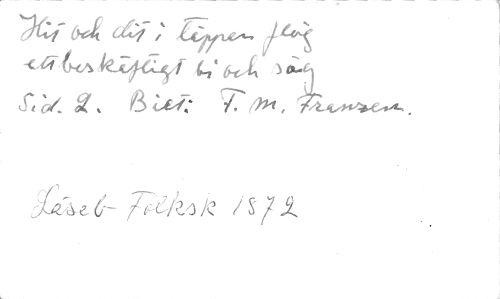 Hit och dit i täppen flög
ett beskäftigt bi och sög
Sid. 2. Biet: F. M. Franzen.
Läseb Folksk 1872